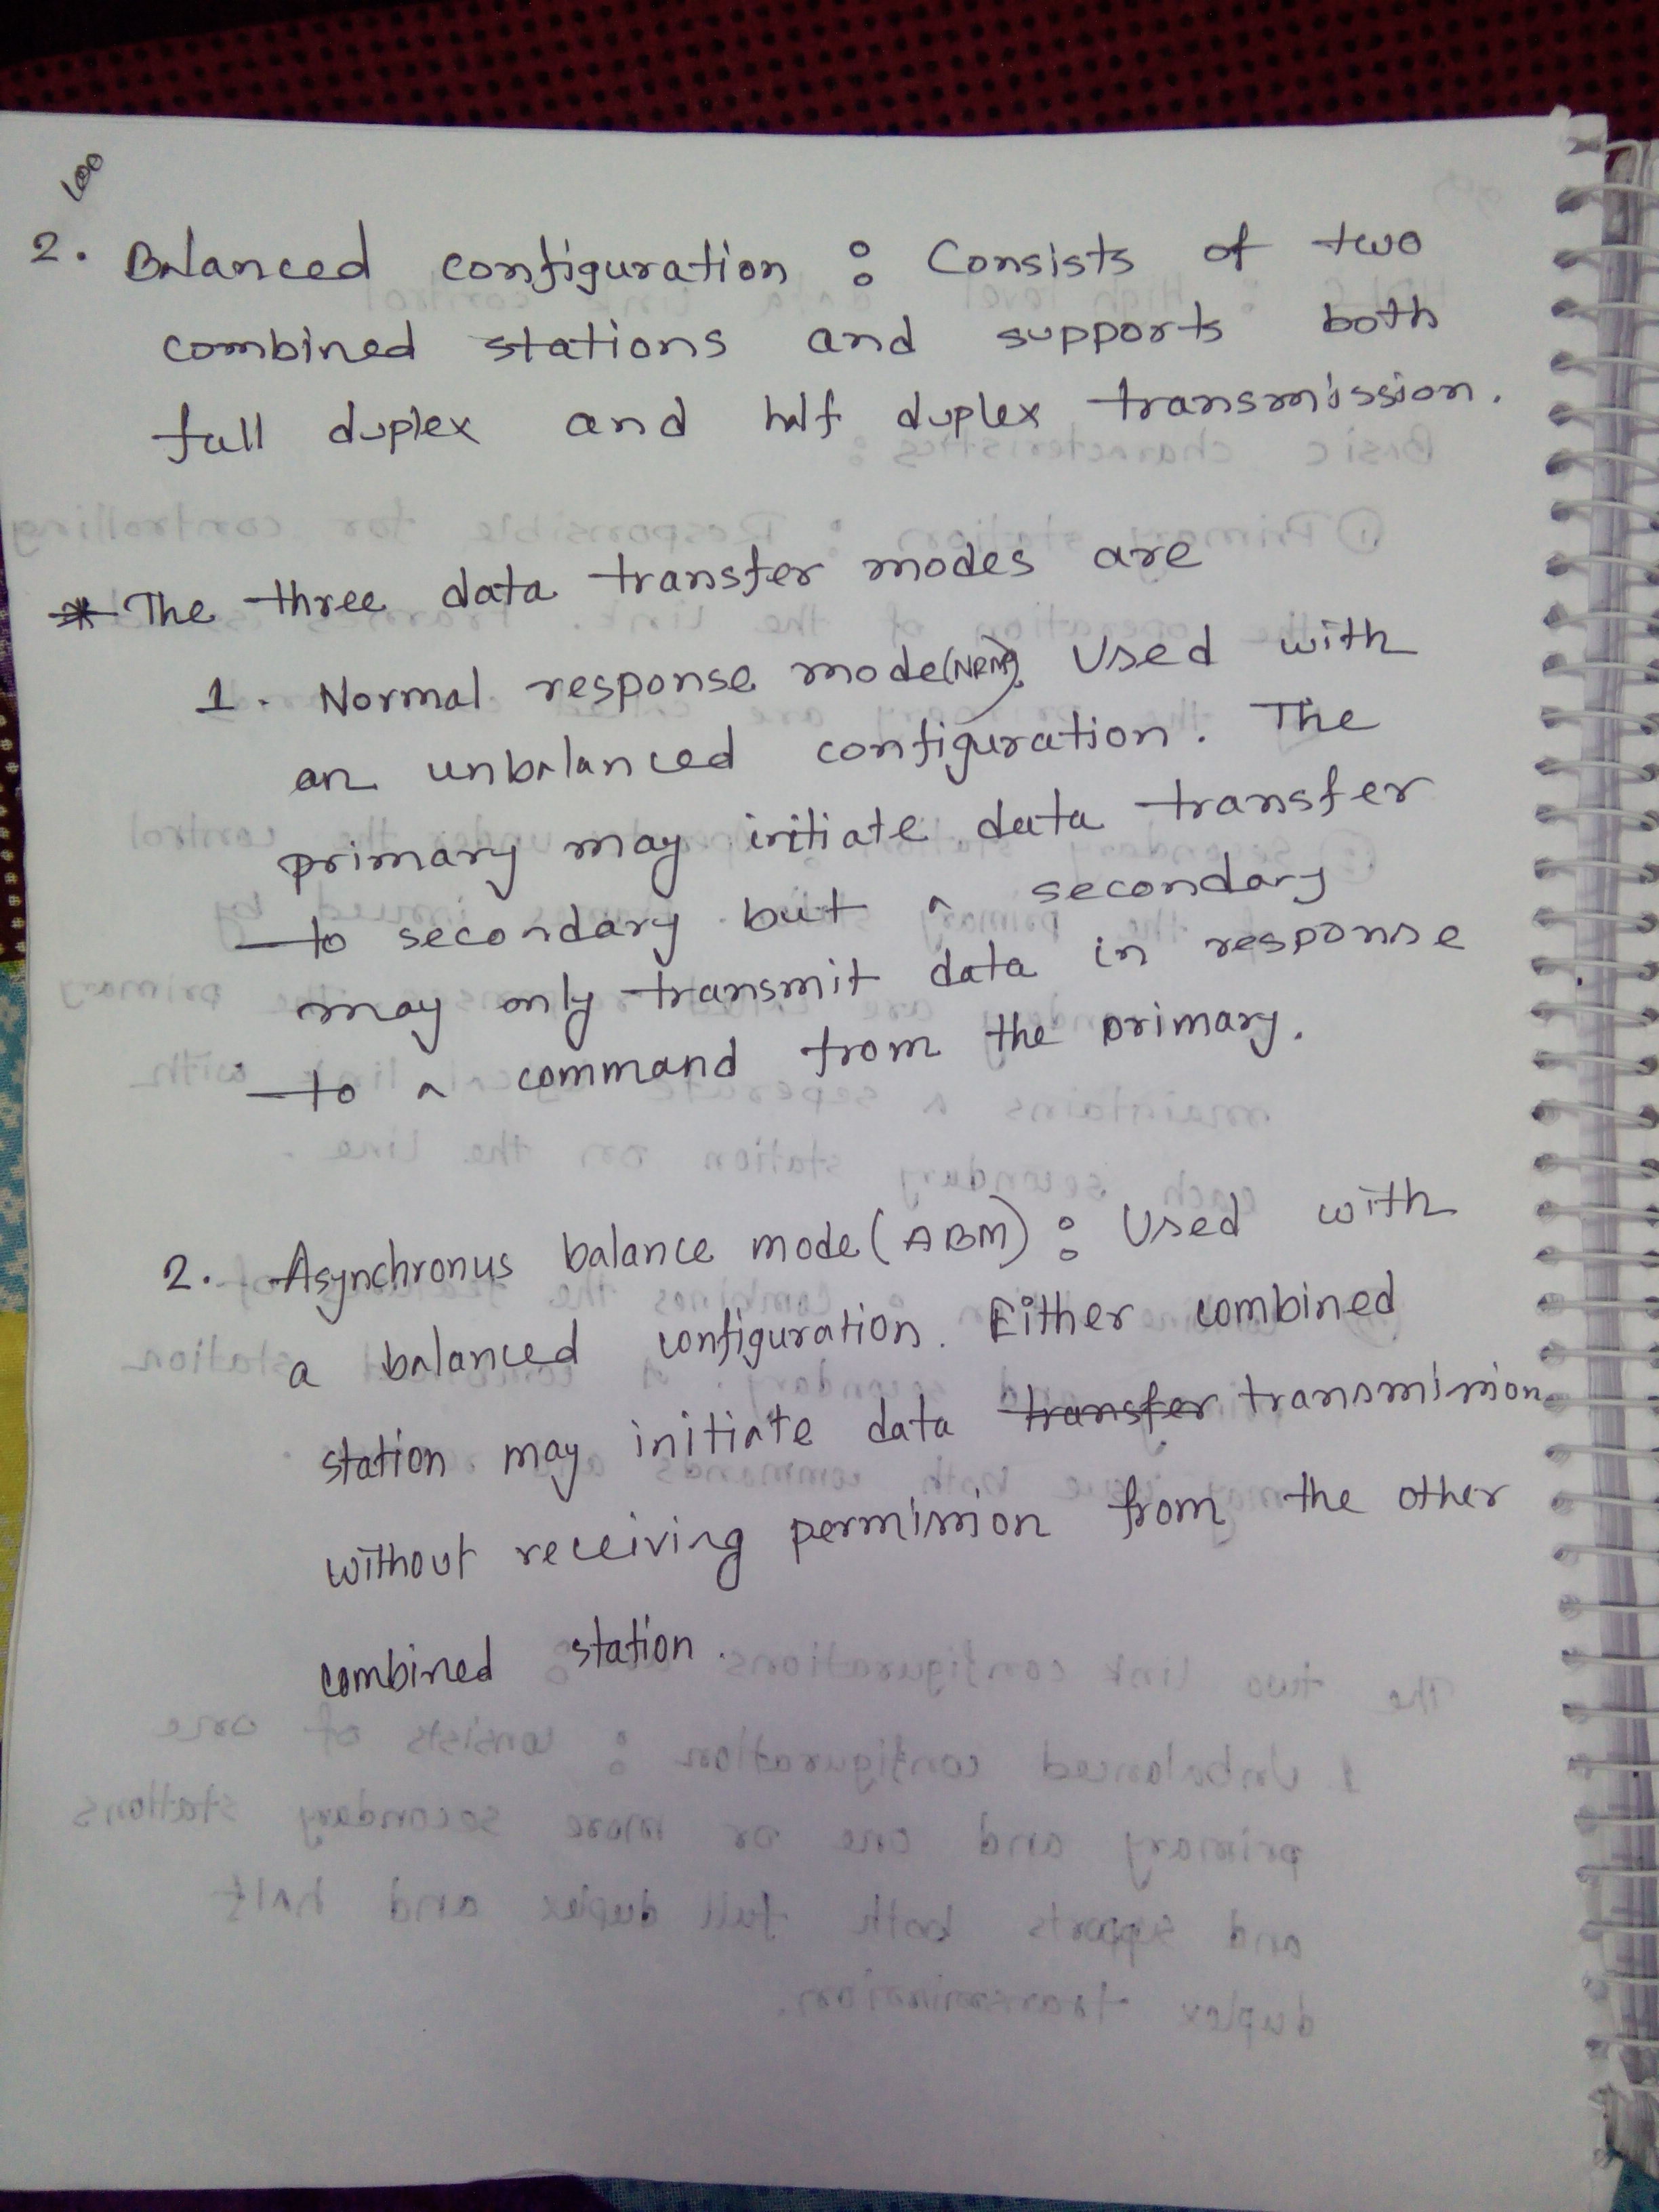 100
2. Balanced configuration : Consists of two
combined stations and supports both
full duplex and half duplex transmission.
* The three data transfer modes are
1. Normal response mode(NRM). Used with
an unbalanced configuration. The
primary may initiate data transfer
to secondary but a secondary
may only transmit data in response
to a command from the primary.
2. Asynchronus balance mode (ABM) : Used with
a balanced configuration. Either combined
station may initiate data transfer transmission
without receiving permission from the other
combined station.